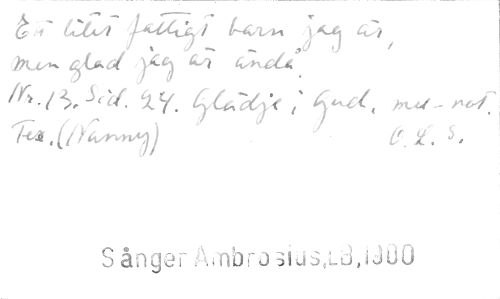 Ett litet fattigt barn jag är,
men glad jag är ändå.
Nr.13. Sid. 24. Glädje i Gud. mel-not.
Tex.(Nanny) O. L. S.
Sånger Ambrosius,LB,1900